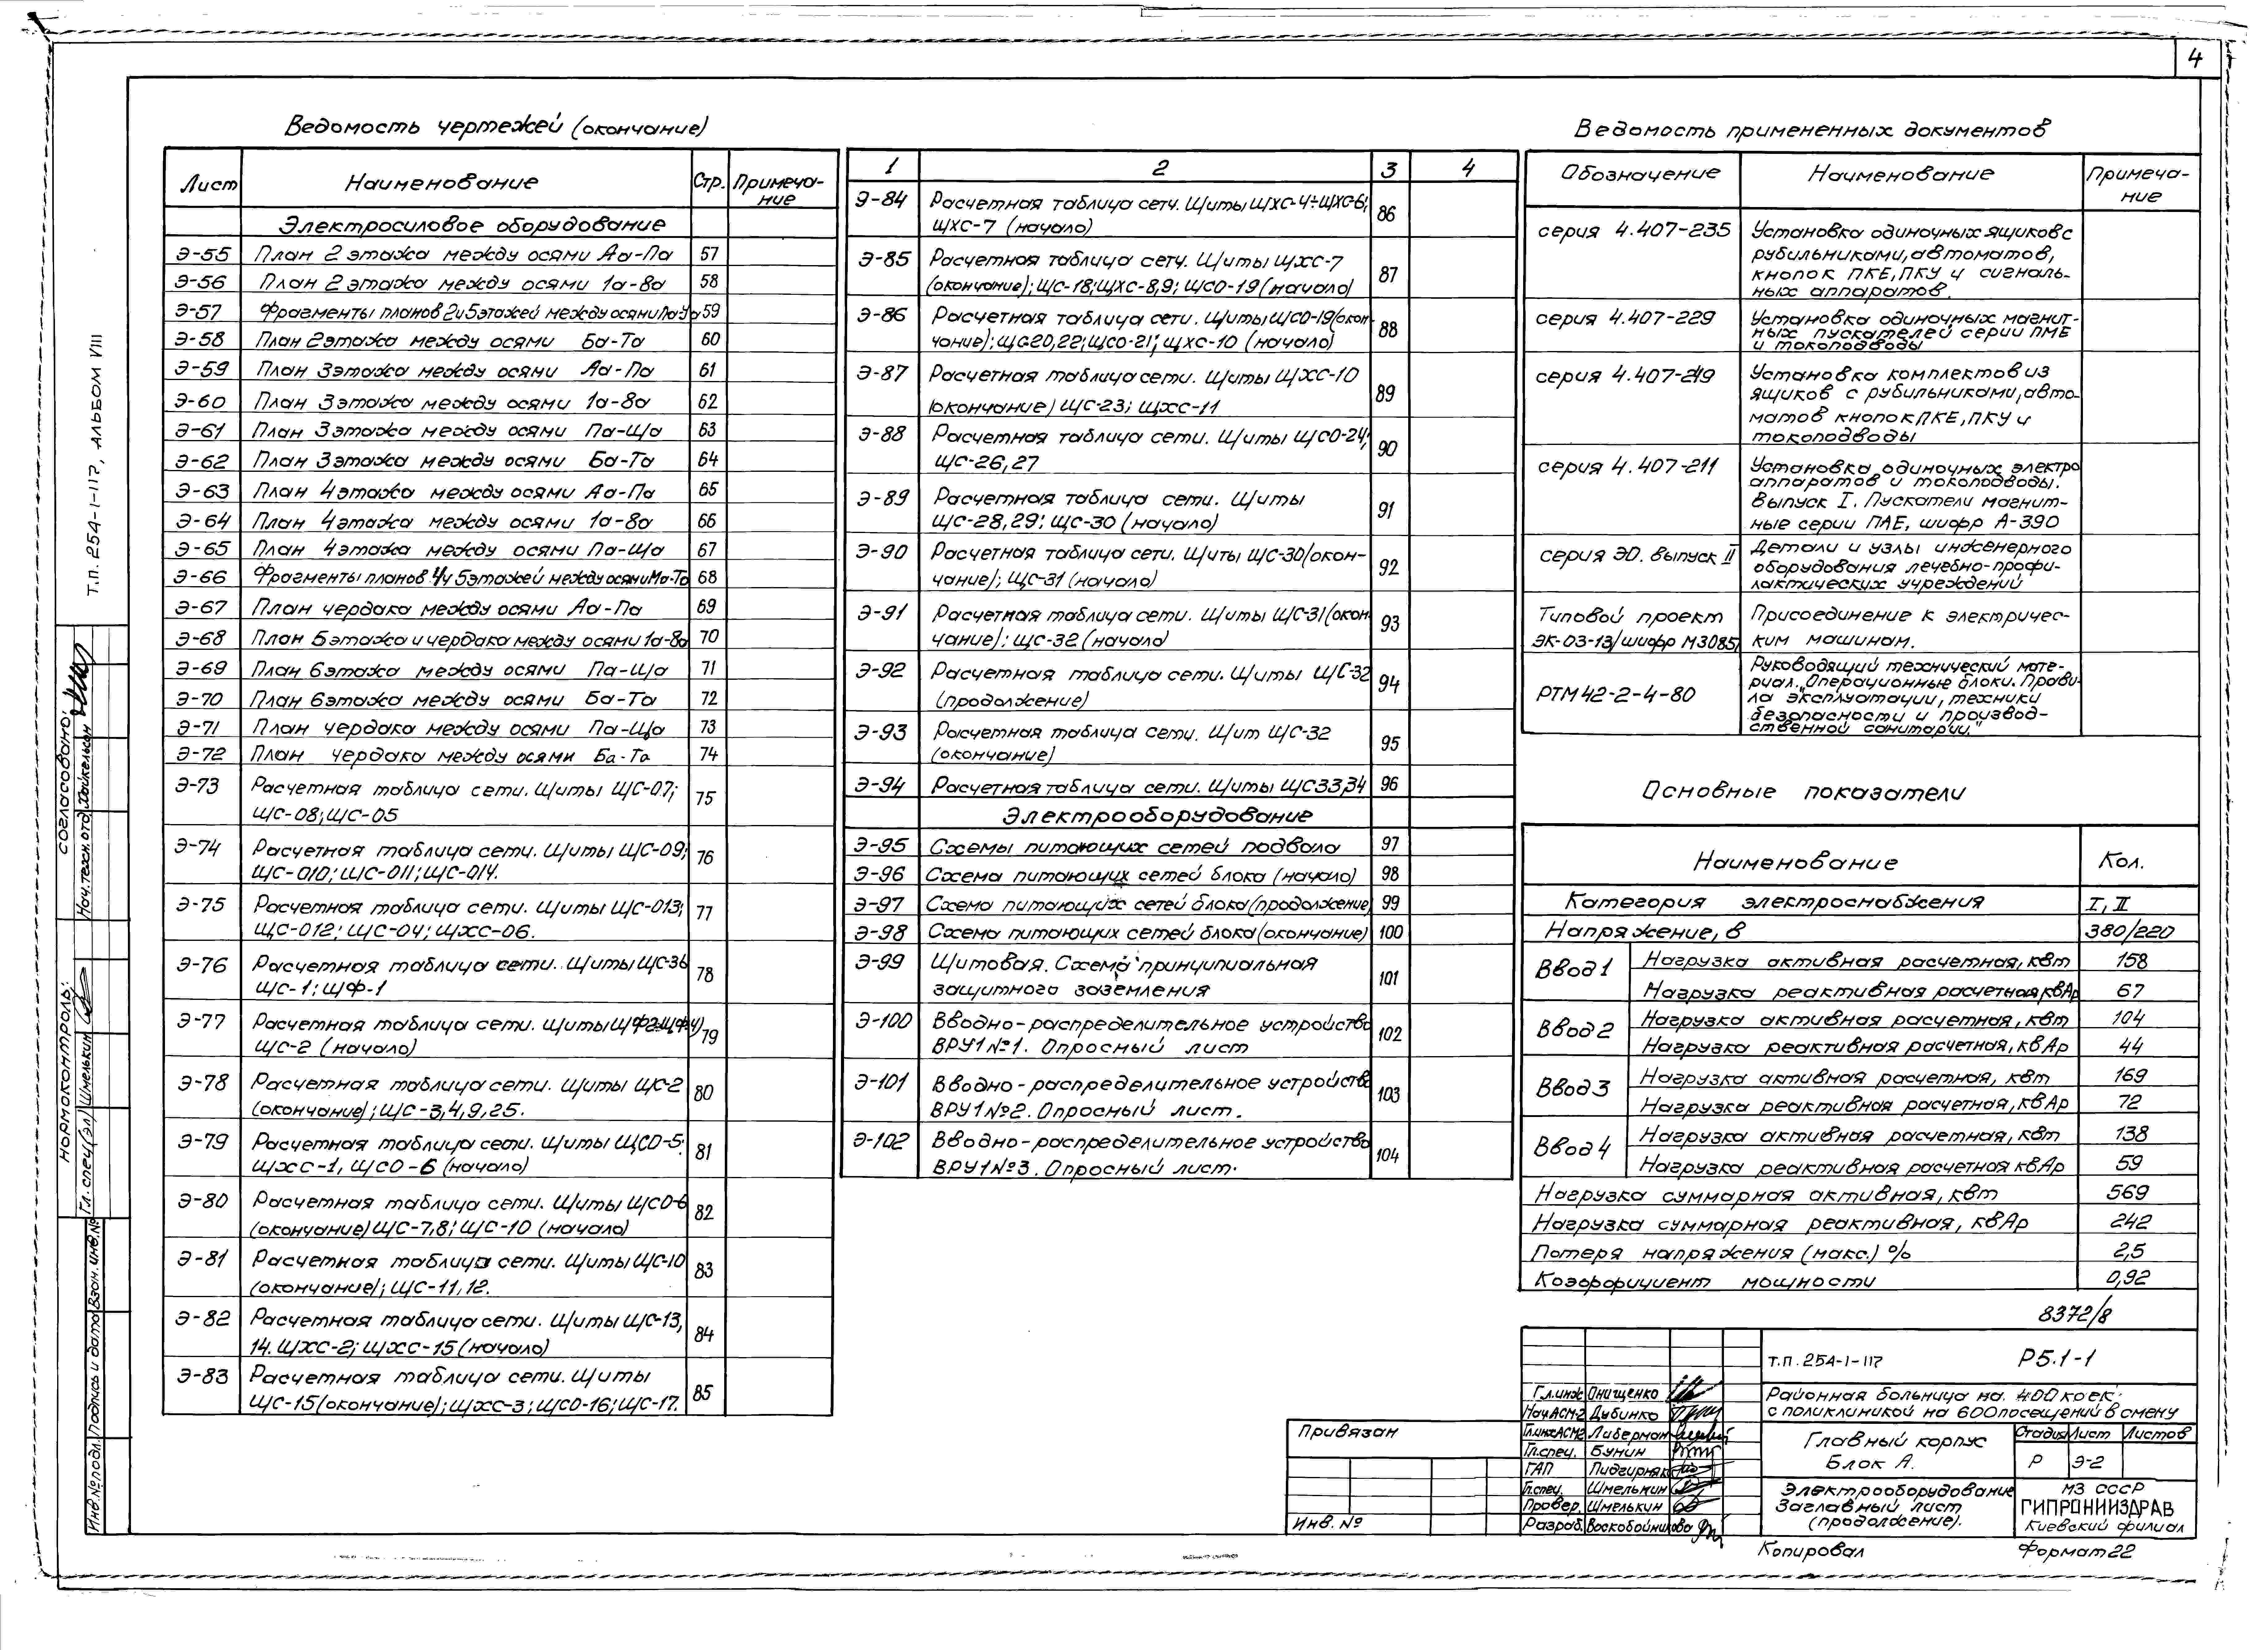 4
Т.П. 254-1-117, АЛЬБОМ VIII
Ведомость чертежей (окончание)
Лист Наименование Стр. Примеча-
ние
Электросиловое оборудование
Э-55 План 2 этажа между осями Аа-Па 57
Э-56 План 2 этажа между осями 1а-8а 58
Э-57 Фрагменты планов 2и5этажей между осями 59
Э-58 План 2этажа между осями Ба-Та 60
Э-59 План 3этажа между осями Аа-Па 61
Э-60 План 3этажа между осями 1а-8а 62
Э-61 План 3этажа между осями Па-Ща 63
Э-62 План 3этажа между осями Ба-Та 64
Э-63 План 4этажа между осями Аа-Па 65
Э-64 План 4этажа между осями 1а-8а 66
Э-65 План 4этажа между осями Па-Ща 67
Э-66 Фрагменты планов 4и5этажей между осями Ма-Та 68
Э-67 План чердака между осями Аа-Па 69
Э-68 План 5этажа и чердака между осями 1а-8а 70
Э-69 План 6этажа между осями Па-Ща 71
Э-70 План 6этажа между осями Ба-Та 72
Э-71 План чердака между осями Па-Ща 73
Э-72 План чердака между осями Ба-Та 74
Э-73 Расчетная таблица сети. Щиты ЩС-07; 75
ЩС-08; ЩС-05
Э-74 Расчетная таблица сети. Щиты ЩС-09; 76
ЩС-010; ЩС-011; ЩС-014.
Э-75 Расчетная таблица сети. Щиты ЩС-013; 77
ЩС-012; ЩС-04; ЩХС-06.
Э-76 Расчетная таблица сети. Щиты ЩС-36 78
ЩС-1; ЩФ-1
Э-77 Расчетная таблица сети. Щиты 79
ЩС-2 (начало)
Э-78 Расчетная таблица сети. Щиты ЩС-2 80
(окончание); ЩС-3,4,9,25.
Э-79 Расчетная таблица сети. Щиты ЩСО-5; 81
ЩХС-1, ЩСО-6 (начало)
Э-80 Расчетная таблица сети. Щиты ЩСО-6 82
(окончание) ЩС-7,8; ЩС-10 (начало)
Э-81 Расчетная таблица сети. Щиты ЩС-10 83
(окончание); ЩС-11,12.
Э-82 Расчетная таблица сети. Щиты ЩС-13, 84
14. ЩХС-2; ЩХС-15 (начало)
Э-83 Расчетная таблица сети. Щиты 85
ЩС-15 (окончание); ЩХС-3; ЩСО-16; ЩС-17.
1 2 3 4
Э-84 Расчетная таблица сети. Щиты ЩХС-4÷ЩХС-6; 86
ЩХС-7 (начало)
Э-85 Расчетная таблица сети. Щиты ЩХС-7 87
(окончание); ЩС-18; ЩХС-8,9; ЩСО-19 (начало)
Э-86 Расчетная таблица сети. Щиты ЩСО-19(окон- 88
чание); ЩС-20,22; ЩСО-21; ЩХС-10 (начало)
Э-87 Расчетная таблица сети. Щиты ЩХС-10 89
(окончание) ЩС-23; ЩХС-11
Э-88 Расчетная таблица сети. Щиты ЩСО-24; 90
ЩС-26,27
Э-89 Расчетная таблица сети. Щиты 91
ЩС-28,29; ЩС-30 (начало)
Э-90 Расчетная таблица сети. Щиты ЩС-30(окон- 92
чание); ЩС-31 (начало)
Э-91 Расчетная таблица сети. Щиты ЩС-31(окон- 93
чание); ЩС-32 (начало)
Э-92 Расчетная таблица сети. Щиты ЩС-32 94
(продолжение)
Э-93 Расчетная таблица сети. Щит ЩС-32 95
(окончание)
Э-94 Расчетная таблица сети. Щиты ЩС33,34 96
Электрооборудование
Э-95 Схемы питающих сетей подвала 97
Э-96 Схема питающих сетей блока (начало) 98
Э-97 Схема питающих сетей блока (продолжение) 99
Э-98 Схема питающих сетей блока (окончание) 100
Э-99 Щитовая. Схема принципиальная 101
защитного заземления
Э-100 Вводно-распределительное устройство 102
ВРУ1 №1. Опросный лист
Э-101 Вводно-распределительное устройство 103
ВРУ1 №2. Опросный лист.
Э-102 Вводно-распределительное устройство 104
ВРУ1 №3. Опросный лист.
Ведомость примененных документов
Обозначение Наименование Примеча-
ние
серия 4.407-235 Установка одиночных ящиков с
рубильниками, автоматов,
кнопок ПКЕ, ПКУ и сигналь-
ных аппаратов.
серия 4.407-229 Установка одиночных магнит-
ных пускателей серии ПМЕ
и токоподводы
серия 4.407-219 Установка комплектов из
ящиков с рубильниками, авто-
матов кнопок ПКЕ, ПКУ и
токоподводы
серия 4.407-211 Установка одиночных электро
аппаратов и токоподводы.
Выпуск I. Пускатели магнит-
ные серии ПАЕ, шифр А-390
серия ЭО. Выпуск II Детали и узлы инженерного
оборудования лечебно-профи-
лактических учреждений
Типовой проект Присоединение к электричес-
ЭК-03-13/шифр М3085/ ким машинам.
РТМ 42-2-4-80 Руководящий технический мате-
риал. "Операционные блоки. Прави-
ла эксплуатации, техники
безопасности и производ-
ственной санитарии."
Основные показатели
Наименование Кол.
Категория электроснабжения I, II
Напряжение, в 380/220
Ввод 1 Нагрузка активная расчетная, квт 158
Нагрузка реактивная расчетная, кВАр 67
Ввод 2 Нагрузка активная расчетная, квт 104
Нагрузка реактивная расчетная, кВАр 44
Ввод 3 Нагрузка активная расчетная, квт 169
Нагрузка реактивная расчетная, кВАр 72
Ввод 4 Нагрузка активная расчетная, квт 138
Нагрузка реактивная расчетная кВАр 59
Нагрузка суммарная активная, квт 569
Нагрузка суммарная реактивная, кВАр 242
Потеря напряжения (макс.) % 2,5
Коэффициент мощности 0,92
8372/8
Т.П. 254-1-117 Р5.1-1
Районная больница на 400 коек
с поликлиникой на 600 посещений в смену
Главный корпус
Блок А.
Стадия Лист Листов
Р Э-2
Электрооборудование
Заглавный лист
(продолжение).
МЗ СССР
ГИПРОНИИЗДРАВ
Киевский филиал
Гл.инж Онищенко
Нач.АСМ-2 Дубинко
Гл.инжАСМ2 Либерман
Гл.спец. Бунин
ГАП
Гл.спец. Шмелькин
Провер. Шмелькин
Разраб. Воскобойникова
Привязан
Инв. №
Копировал Формат 22
согласовано:
Нач.техн.отд. Хайкельсон
нормоконтроль:
Гл. спец.(эл) Шмелькин
Инв.№подл. Подпись и дата Взам. инв.№